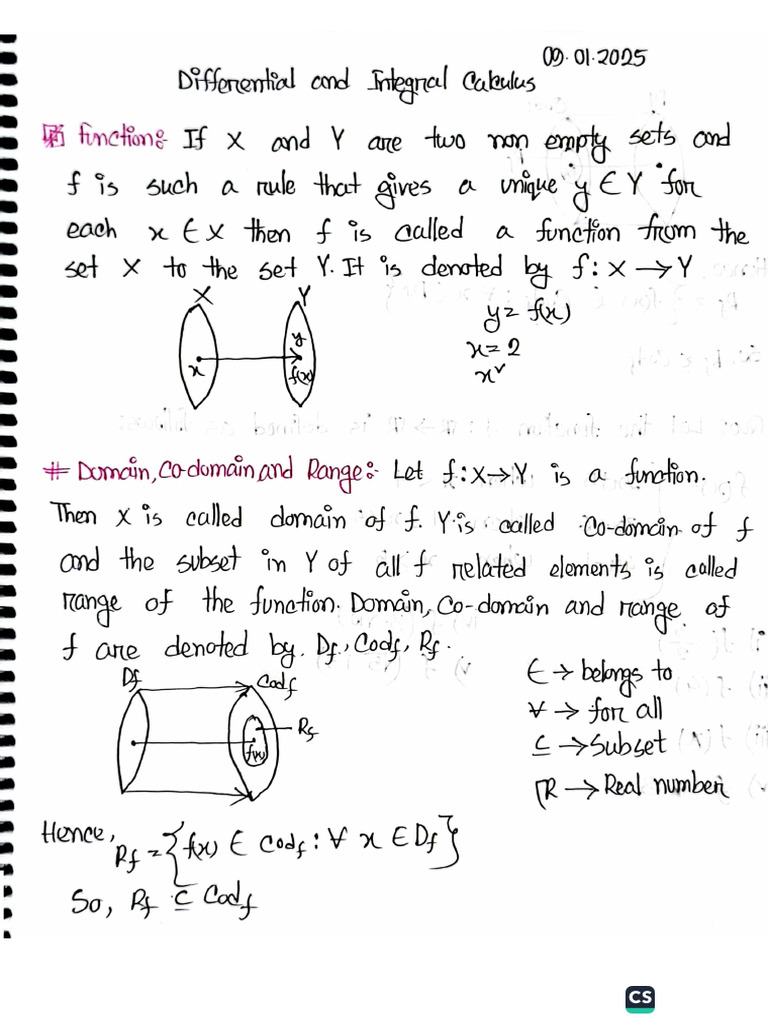 09.01.2025
Differential and Integral Calculus
function:- If X and Y are two non empty sets and
f is such a rule that gives a unique y ∈ Y for
each x ∈ X then f is called a function from the
set X to the set Y. It is denoted by f: X → Y
X Y
y = f(x)
y
x = 2
x
f(x)
# Domain, Co-domain and Range:- Let f: X → Y is a function.
Then X is called domain of f. Y is called Co-domain of f
and the subset in Y of all f related elements is called
range of the function. Domain, Co-domain and range of
f are denoted by. Df, Codf, Rf.
Df Codf
Rf
f(x)
∈ → belongs to
∀ → for all
⊆ → Subset
ℝ → Real number
Hence,
Rf = {f(x) ∈ Codf : ∀ x ∈ Df}
So, Rf ⊆ Codf
CS